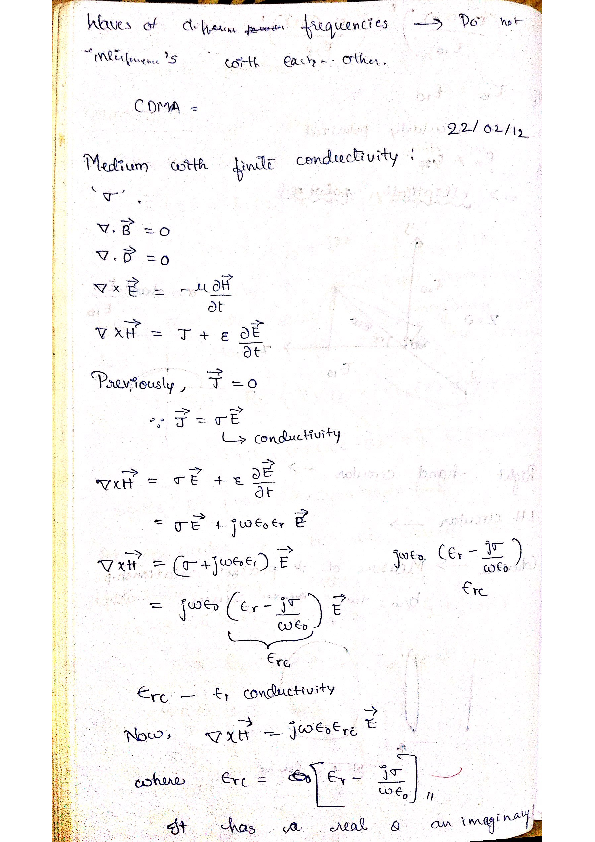 Waves of different frequencies → Do not
interfere's with each other.
CDMA =
22/02/12
Medium with finite conductivity :
'σ'.
∇. B⃗ = 0
∇. D⃗ = 0
∇ × E⃗ = -μ ∂H⃗/∂t
∇ × H⃗ = J + ε ∂E⃗/∂t
Previously, J⃗ = 0
∵ J⃗ = σE⃗
↳ conductivity
∇×H⃗ = σE⃗ + ε ∂E⃗/∂t
= σE⃗ + jωε₀εr E⃗
∇×H⃗ = (σ + jωε₀εr). E⃗
jωε₀ (εr - jσ/ωε₀)
εrc
= jωε₀ (εr - jσ/ωε₀) E⃗
εrc
εrc — εr conductivity
Now, ∇×H⃗ = jωε₀εrc E⃗
where εrc = [εr - jσ/ωε₀] "
It has a real & an imaginary